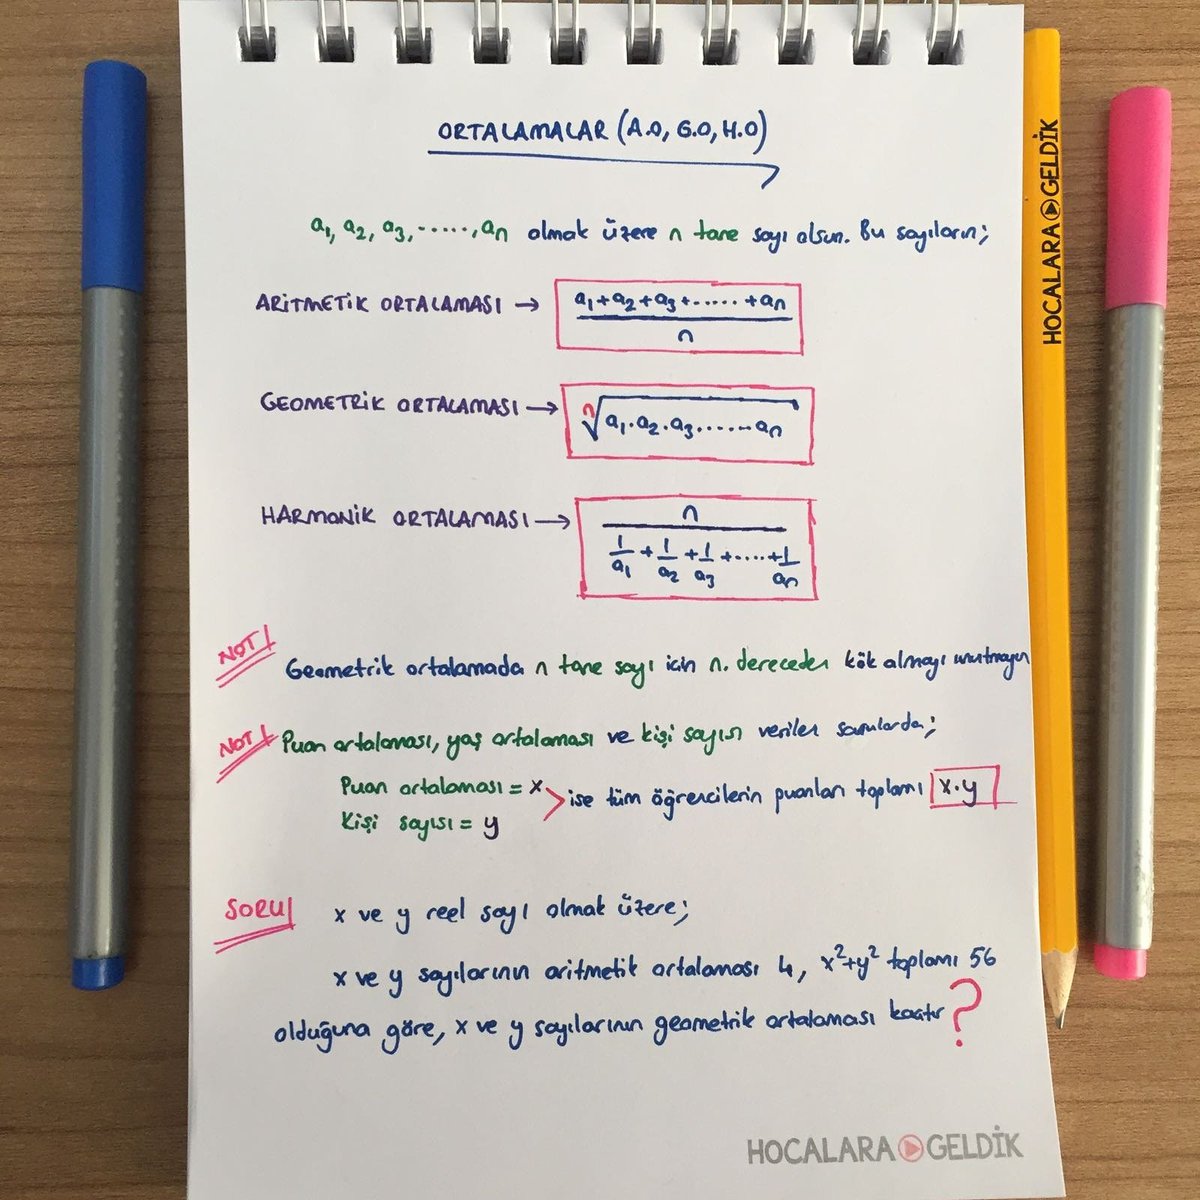 ORTALAMALAR (A.O, G.O, H.O)
a₁, a₂, a₃, ·····, aₙ olmak üzere n tane sayı olsun. Bu sayıların;
ARİTMETİK ORTALAMASI → (a₁+a₂+a₃+·····+aₙ)/n
GEOMETRİK ORTALAMASI → ⁿ√(a₁.a₂.a₃.......aₙ)
HARMONİK ORTALAMASI → n/(1/a₁+1/a₂+1/a₃+·····+1/aₙ)
NOT!
Geometrik ortalamada n tane sayı için n. dereceden kök almayı unutmayın
NOT! Puan ortalaması, yaş ortalaması ve kişi sayısı verilen sorularda;
Puan ortalaması = x
Kişi sayısı = y
ise tüm öğrencilerin puanları toplamı x.y
SORU! x ve y reel sayı olmak üzere;
x ve y sayılarının aritmetik ortalaması 4, x²+y² toplamı 56
olduğuna göre, x ve y sayılarının geometrik ortalaması kaçtır?
HOCALARA GELDİK
HOCALARA GELDİK